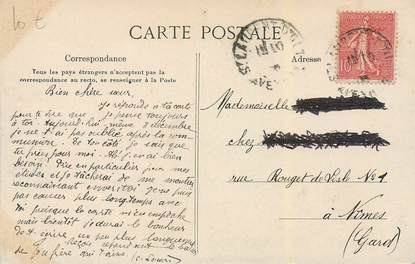 10 €
CARTE POSTALE
Correspondance
Tous les pays étrangers n'acceptent pas la
correspondance au recto, se renseigner à la Poste
Adresse
Bien chère sœur,
Je réponds à ta carte
pour te dire que je pense toujours
à toi. Aujourd'hui même 8 décembre
je ne t'ai pas oubliée après la com-
munion. De ton côté je sais que
tu pries pour moi. Ah! j'en ai bien
besoin! Prie en particulier pour mes
études et je tâcherai de me montrer
reconnaissant envers toi. Je ne puis
pas causer plus longtemps avec
toi puisque la carte m'en empêche
mais bientôt j'aurai le bonheur
de t'écrire un peu plus longuement
Reçois
frère qui t'aime.
Mademoiselle
chez
rue Rouget de Lisle No 1
à Nîmes
(Gard)